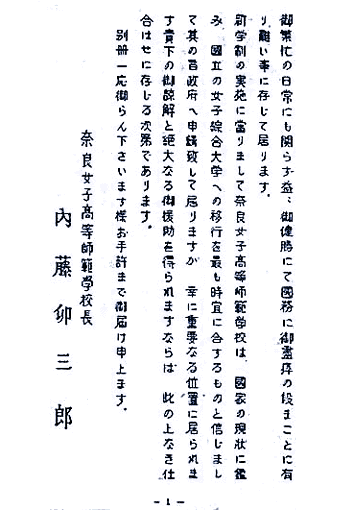 御繁忙の日常にも関らず益〻御健勝にて國務に御盡瘁の段まことに有
り難い事に存じて居ります。
新学制の実施に當りまして奈良女子高等師範学校は、國家の現狀に鑑
み、國立の女子綜合大学への移行を最も時宜に合するものと信じまし
て其の旨政府へ申請致して居りますが、幸に重要なる位置に居られま
す貴下の御諒解と絶大なる御援助を得られますならば、此の上なき仕
合はせに存じる次第であります。
別冊一応御らん下さいます様お手許まで御届け申上ます。
奈良女子高等師範学校長
内藤卯三郎
- 1 -